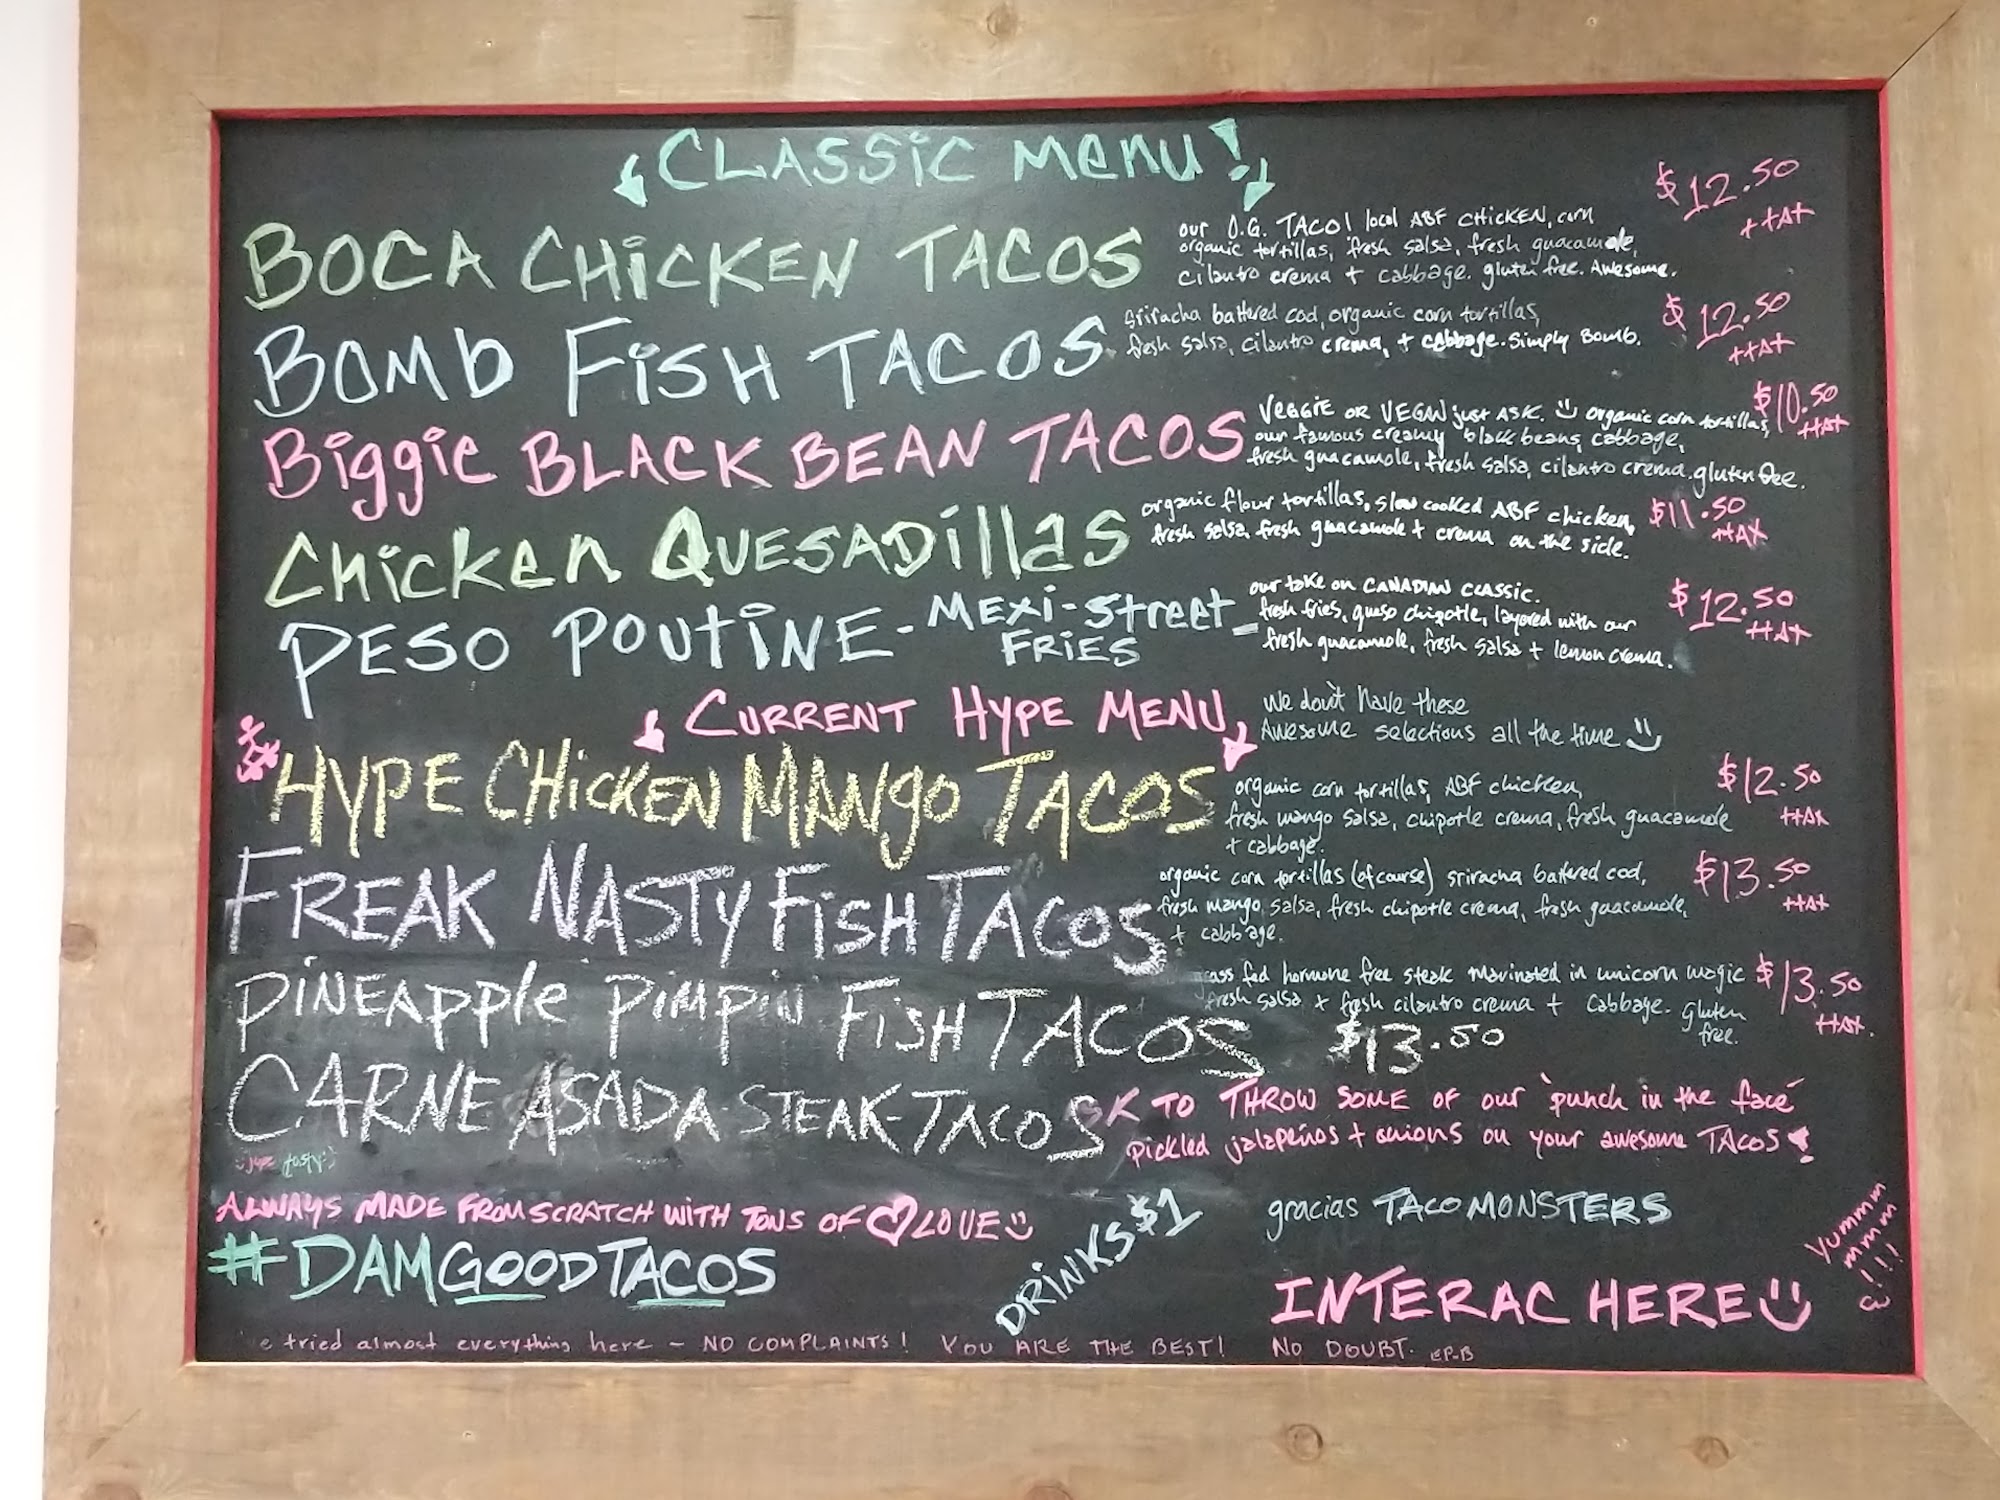 CLASSiC Menu!
BOCA CHiCKEN TACOS
our O.G. TACO! local ABF CHICKEN, corn
organic tortillas, fresh salsa, fresh guacamole,
cilantro crema + cabbage. gluten free. Awesome.
$12.50
+ tax
BOMb FiSH TACOS
Sriracha battered cod, organic corn tortillas,
fresh salsa, cilantro crema, + cabbage. Simply Bomb.
$12.50
+tax
Biggie BLACK BEAN TACOS
VEGGIE OR VEGAN just ASK. organic corn tortillas,
our famous creamy black beans, cabbage,
fresh guacamole, fresh salsa, cilantro crema. gluten free.
$10.50
+tax
Chicken QUESADillas
organic flour tortillas, slow cooked ABF chicken,
fresh salsa, fresh guacamole + crema on the side.
$11.50
+tax
PESO POUTiNE - MEXi-Street FRiES
our take on CANADIAN CLASSIC.
fresh fries, queso chipotle, layered with our
fresh guacamole, fresh salsa + lemon crema.
$12.50
+tax
CURRENT HYPE MENU
We don't have these
Awesome selections all the time
HYPE CHicKEN MANgo TACOS
organic corn tortillas, ABF chicken,
fresh mango salsa, chipotle crema, fresh guacamole
+ cabbage.
$12.50
+tax
FREAK NASTY FiSH TACOS
organic corn tortillas (of course) sriracha battered cod,
fresh mango salsa, fresh chipotle crema, fresh guacamole,
+ cabbage.
$13.50
+tax
PiNEApple PiMPiN FiSH TACOS $13.50
fed hormone free steak marinated in unicorn magic
fresh salsa + fresh cilantro crema + cabbage. gluten
free.
$13.50
+tax
CARNE ASADA-STEAK-TACOS
TO THROW SOME OF our 'punch in the face'
pickled jalapeños + onions on your awesome TACOS!
ALWAYS MADE FROM SCRATCH WITH TONS OF LOVE
#DAMGOODTACOS
DRINKS $1
gracias TACO MONSTERS
INTERAC HERE
Yummm
mmm
!!!
tried almost everything here - NO COMPLAINTS! YOU ARE THE BEST! NO DOUBT. EP-B